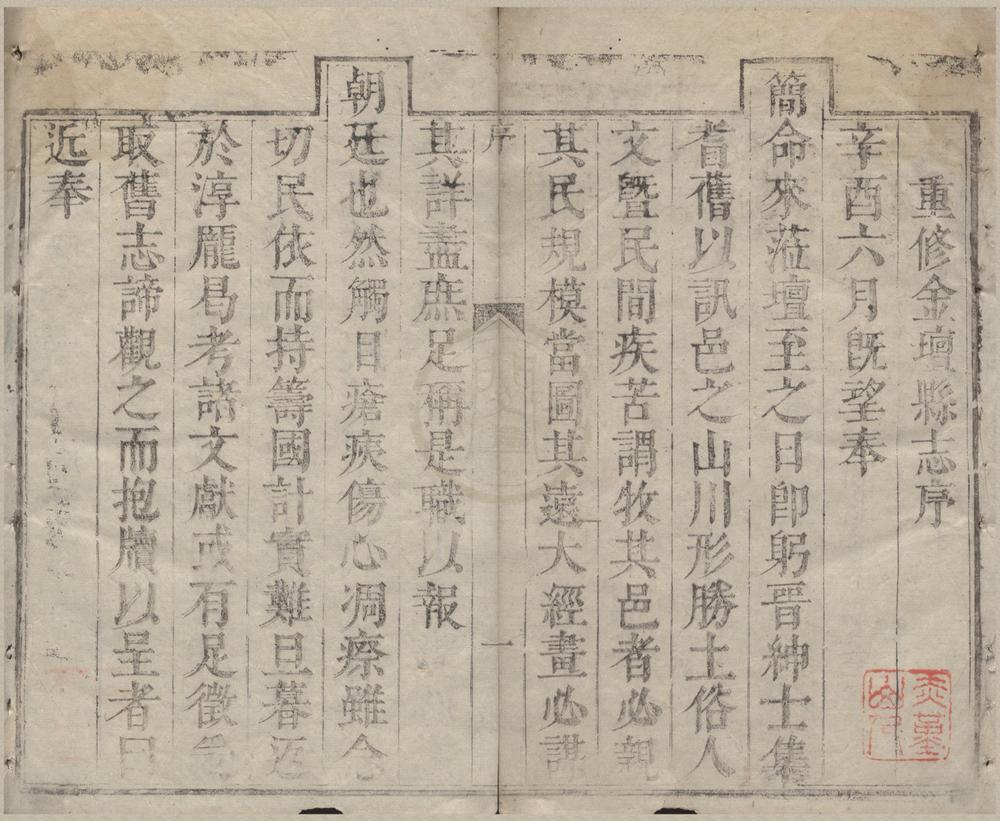 重修金壇縣志序
辛酉六月旣望奉
簡命來蒞壇至之日卽躬晋紳士集
耆舊以訊邑之山川形勝土俗人
文曁民間疾苦謂牧其邑者必親
其民規模當圖其遠大經畫必謀
序
一
其詳盡庶足稱是職以報
朝廷也然觸目瘡痍傷心凋瘵雖令
切民依而持籌國計實難旦暮返
於淳龐曷考諸文獻或有足徵
取舊志諦觀之而抱牘以呈者曰
近奉